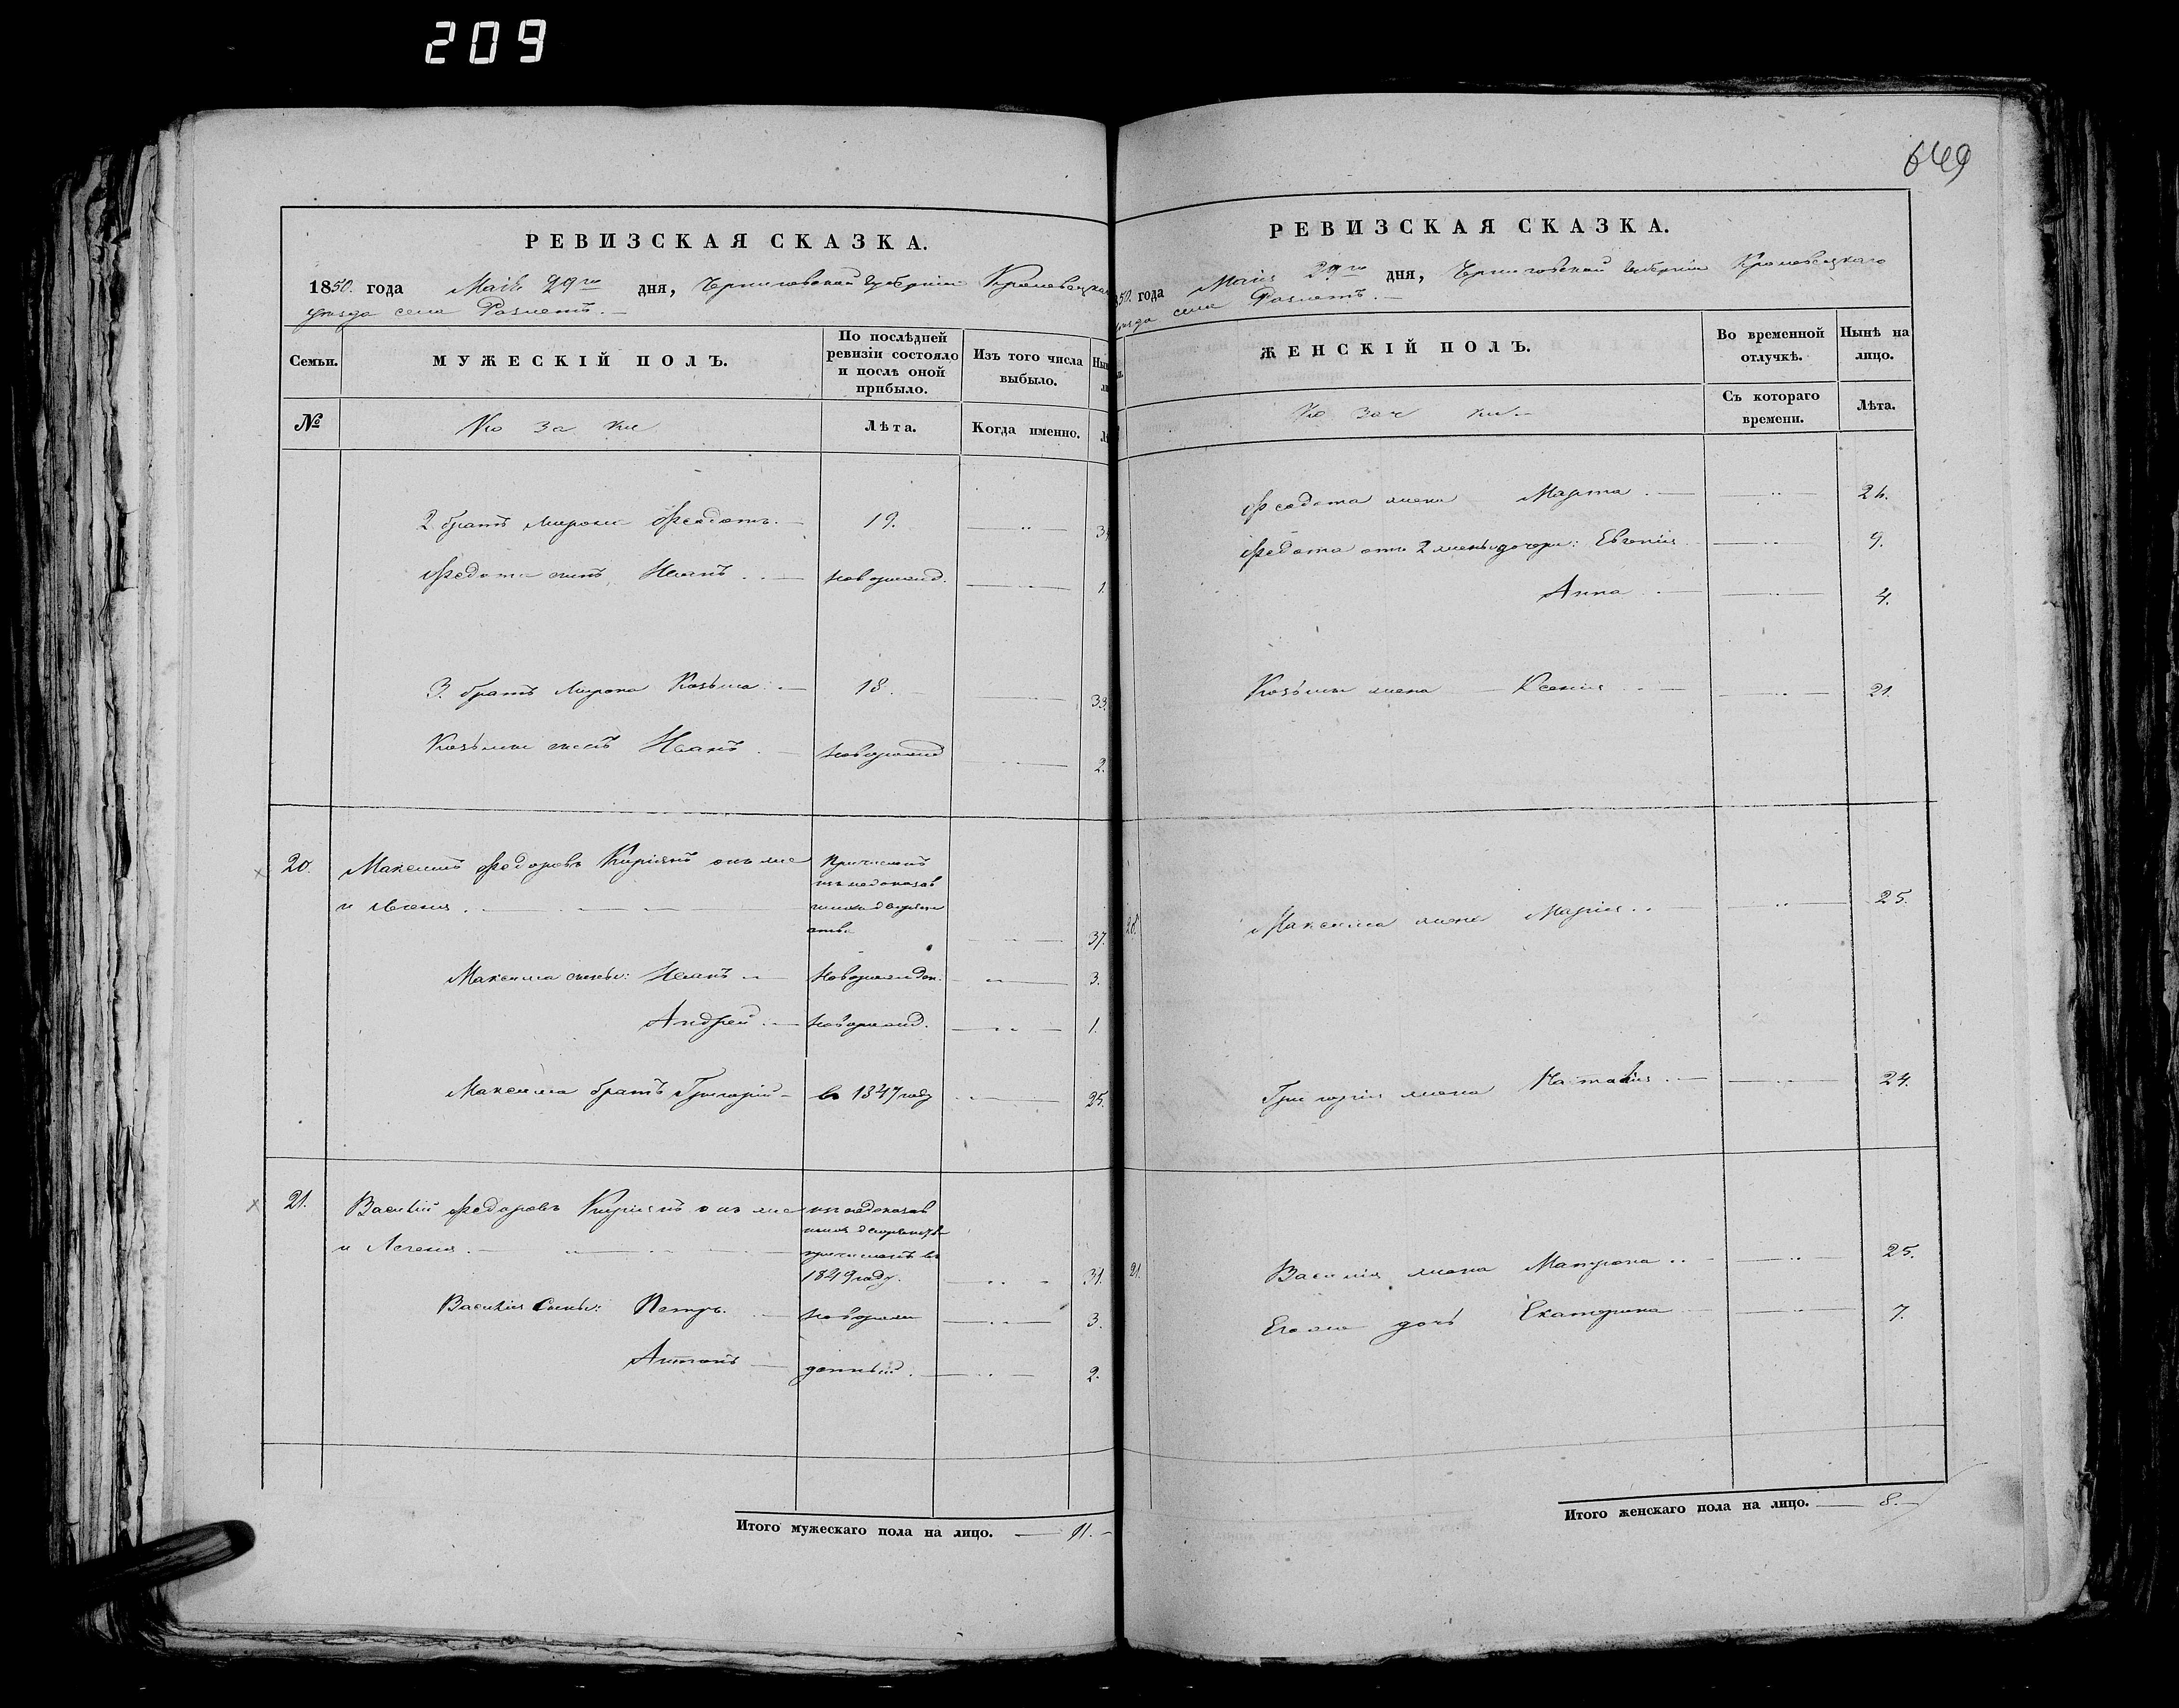 209
649
РЕВИЗСКАЯ СКАЗКА.
1850. года Маія 29го дня, Черниговской губерніи Кролевецкаг
уѣзда села
Семьи.
МУЖЕСКІЙ ПОЛЪ.
По послѣдней ревизіи состояло и послѣ оной прибыло.
Изъ того числа выбыло.
Ны
ли
№
Ко за ки
Лѣта.
Когда именно.
Лѣ
2. братъ Мирона Федотъ. 19. 34
Федота сынъ Иванъ новорожд. 1.
3. братъ Мирона Козьма 18. 33.
Козьмы сынъ Иванъ новорожд 2.
20. Максимъ Федоровъ Киріянъ онъ же
и
Причисленъ
изъ недоказав
37.
Максима сыны: Иванъ новорожден. 3.
Андрей новорожд. 1.
Максима братъ Григорій в 1847 году 25.
21. Василій Федоровъ Киріянъ онъ же
и
изъ недоказав
причисленъ въ
1849 году. 31.
Василія Сыны: Петръ. новорож 3.
Антонъ денный. 2.
Итого мужескаго пола на лицо. 11.
РЕВИЗСКАЯ СКАЗКА.
850. года Маія 29го дня, Черниговской губерніи Кролевецкаго
уѣзда села
ЖЕНСКІЙ ПОЛЪ.
Во временной отлучкѣ.
Нынѣ на лицо.
Ко зач ки
Съ котораго времени.
Лѣта.
Федота жена Марта 24.
Федота отъ 2 жены дочери: Евгенія 9.
Анна 4.
Козьмы жена Ксенія 21.
20. Максима жена Марія 25.
Григорія жена Наталія 24.
21. Василія жена Матрона 25.
Его же дочь Екатерина 7.
Итого женскаго пола на лицо. 8.